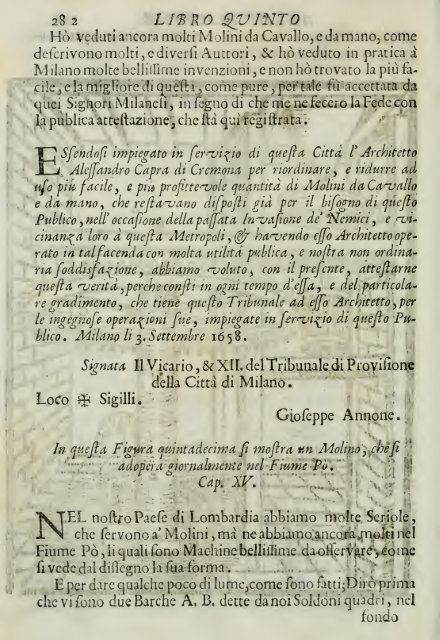 282 LIBRO QVINTO
Hò veduti ancora molti Molini da Cavallo, e da mano, come
deſcrivono molti, e diverſi Auttori, & hò veduto in pratica à
Milano molte belliſſime invenzioni, e non hò trovato la più fa-
cile, e la migliore di queſti, come pure, per tale fù accettata da
quei Signori Milaneſi, in ſegno di che me ne fecero la Fede con
la publica atteſtazione, che ſtà qui regiſtrata.
ESſendoſi impiegato in ſervizio di queſta Città l'Architetto
Aleſſandro Capra di Cremona per riordinare, e ridurre ad
uſo più facile, e più profittevole quantità di Molini da Cavallo
e da mano, che reſtavano diſpoſti già per il biſogno di queſto
Publico, nell'occaſione della paſſata Invaſione de' Nemici, e vi-
cinanza loro à queſta Metropoli, & havendo eſſo Architetto ope-
rato in tal facenda con molta utilità publica, e noſtra non ordina-
ria ſoddisfazione, abbiamo voluto, con il preſente, atteſtarne
queſta verità, perche conſti in ogni tempo d'eſſa, e del particola-
re gradimento, che tiene queſto Tribunale ad eſſo Architetto, per
le ingegnoſe operazioni ſue, impiegate in ſervizio di queſto Pu-
blico. Milano li 3. Settembre 1658.
Signata Il Vicario, & XII. del Tribunale di Proviſione
della Città di Milano.
Loco ✠ Sigilli.
Gioſeppe Annone.
In queſta Figura quintadecima ſi moſtra un Molino, che ſi
adopera giornalmente nel Fiume Po.
Cap. XV.
NEL noſtro Paeſe di Lombardia abbiamo molte Seriole,
che ſervono a' Molini, mà ne abbiamo ancora molti nel
Fiume Pò, li quali ſono Machine belliſſime da oſſervare, come
ſi vede dal diſſegno la ſua forma.
E per dare qualche poco di lume, come ſono fatti; Dirò prima
che vi ſono due Barche A. B. dette da noi Soldoni quadri, nel
fondo